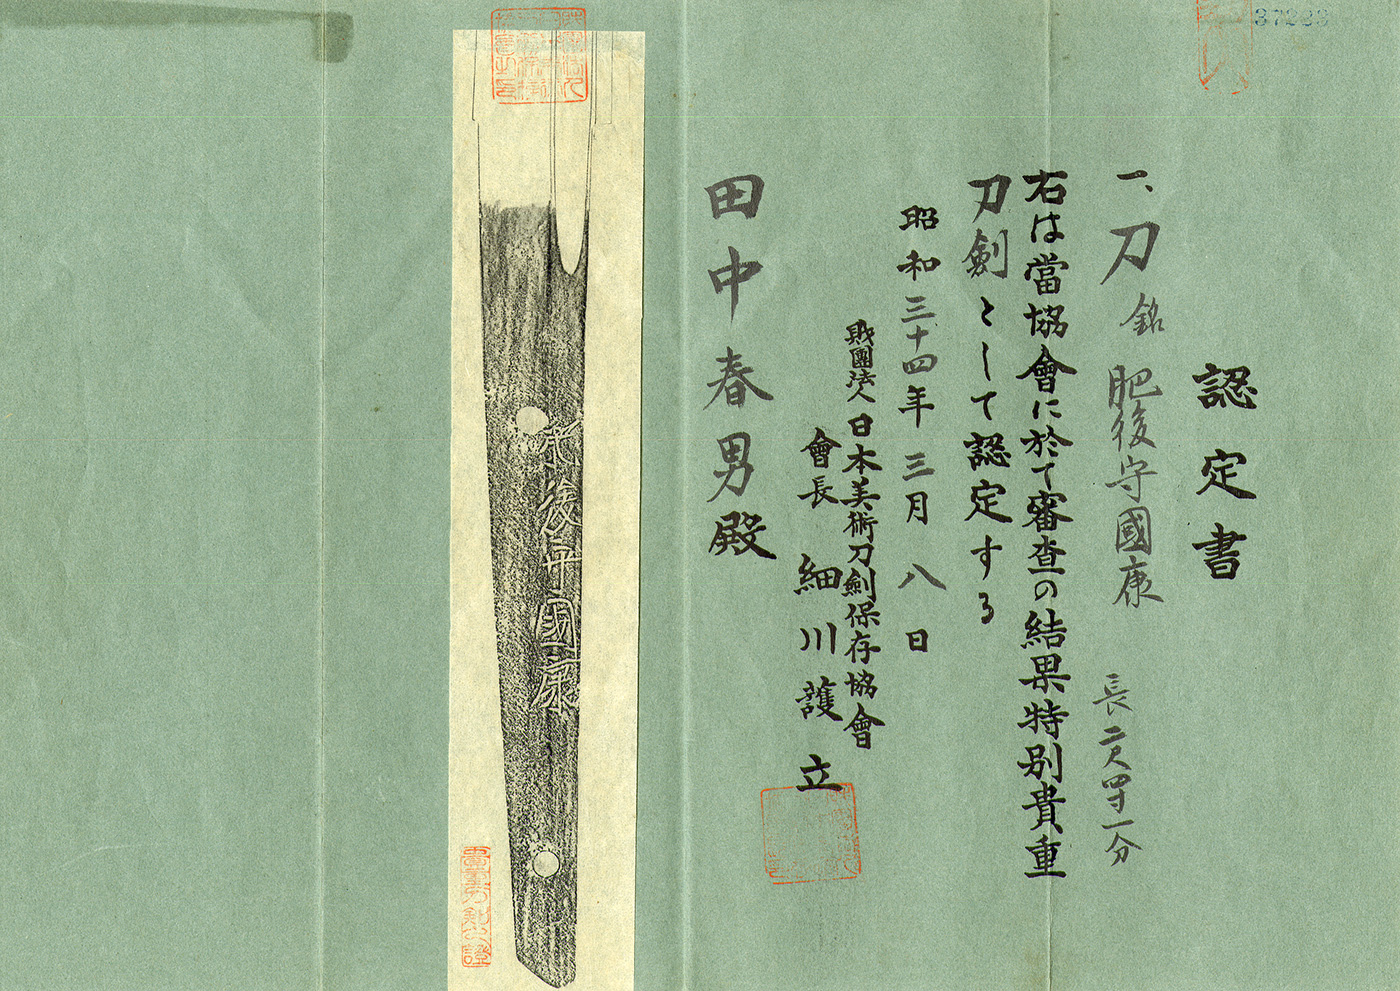 37223
認定書
一、刀 銘 肥後守國康 長二尺四寸一分
右は當協會に於て審査の結果特別貴重
刀劍として認定する
昭和三十四年三月八日
財團法人日本美術刀劍保存協會
會長 細川護立
田中春男殿
肥後守國康